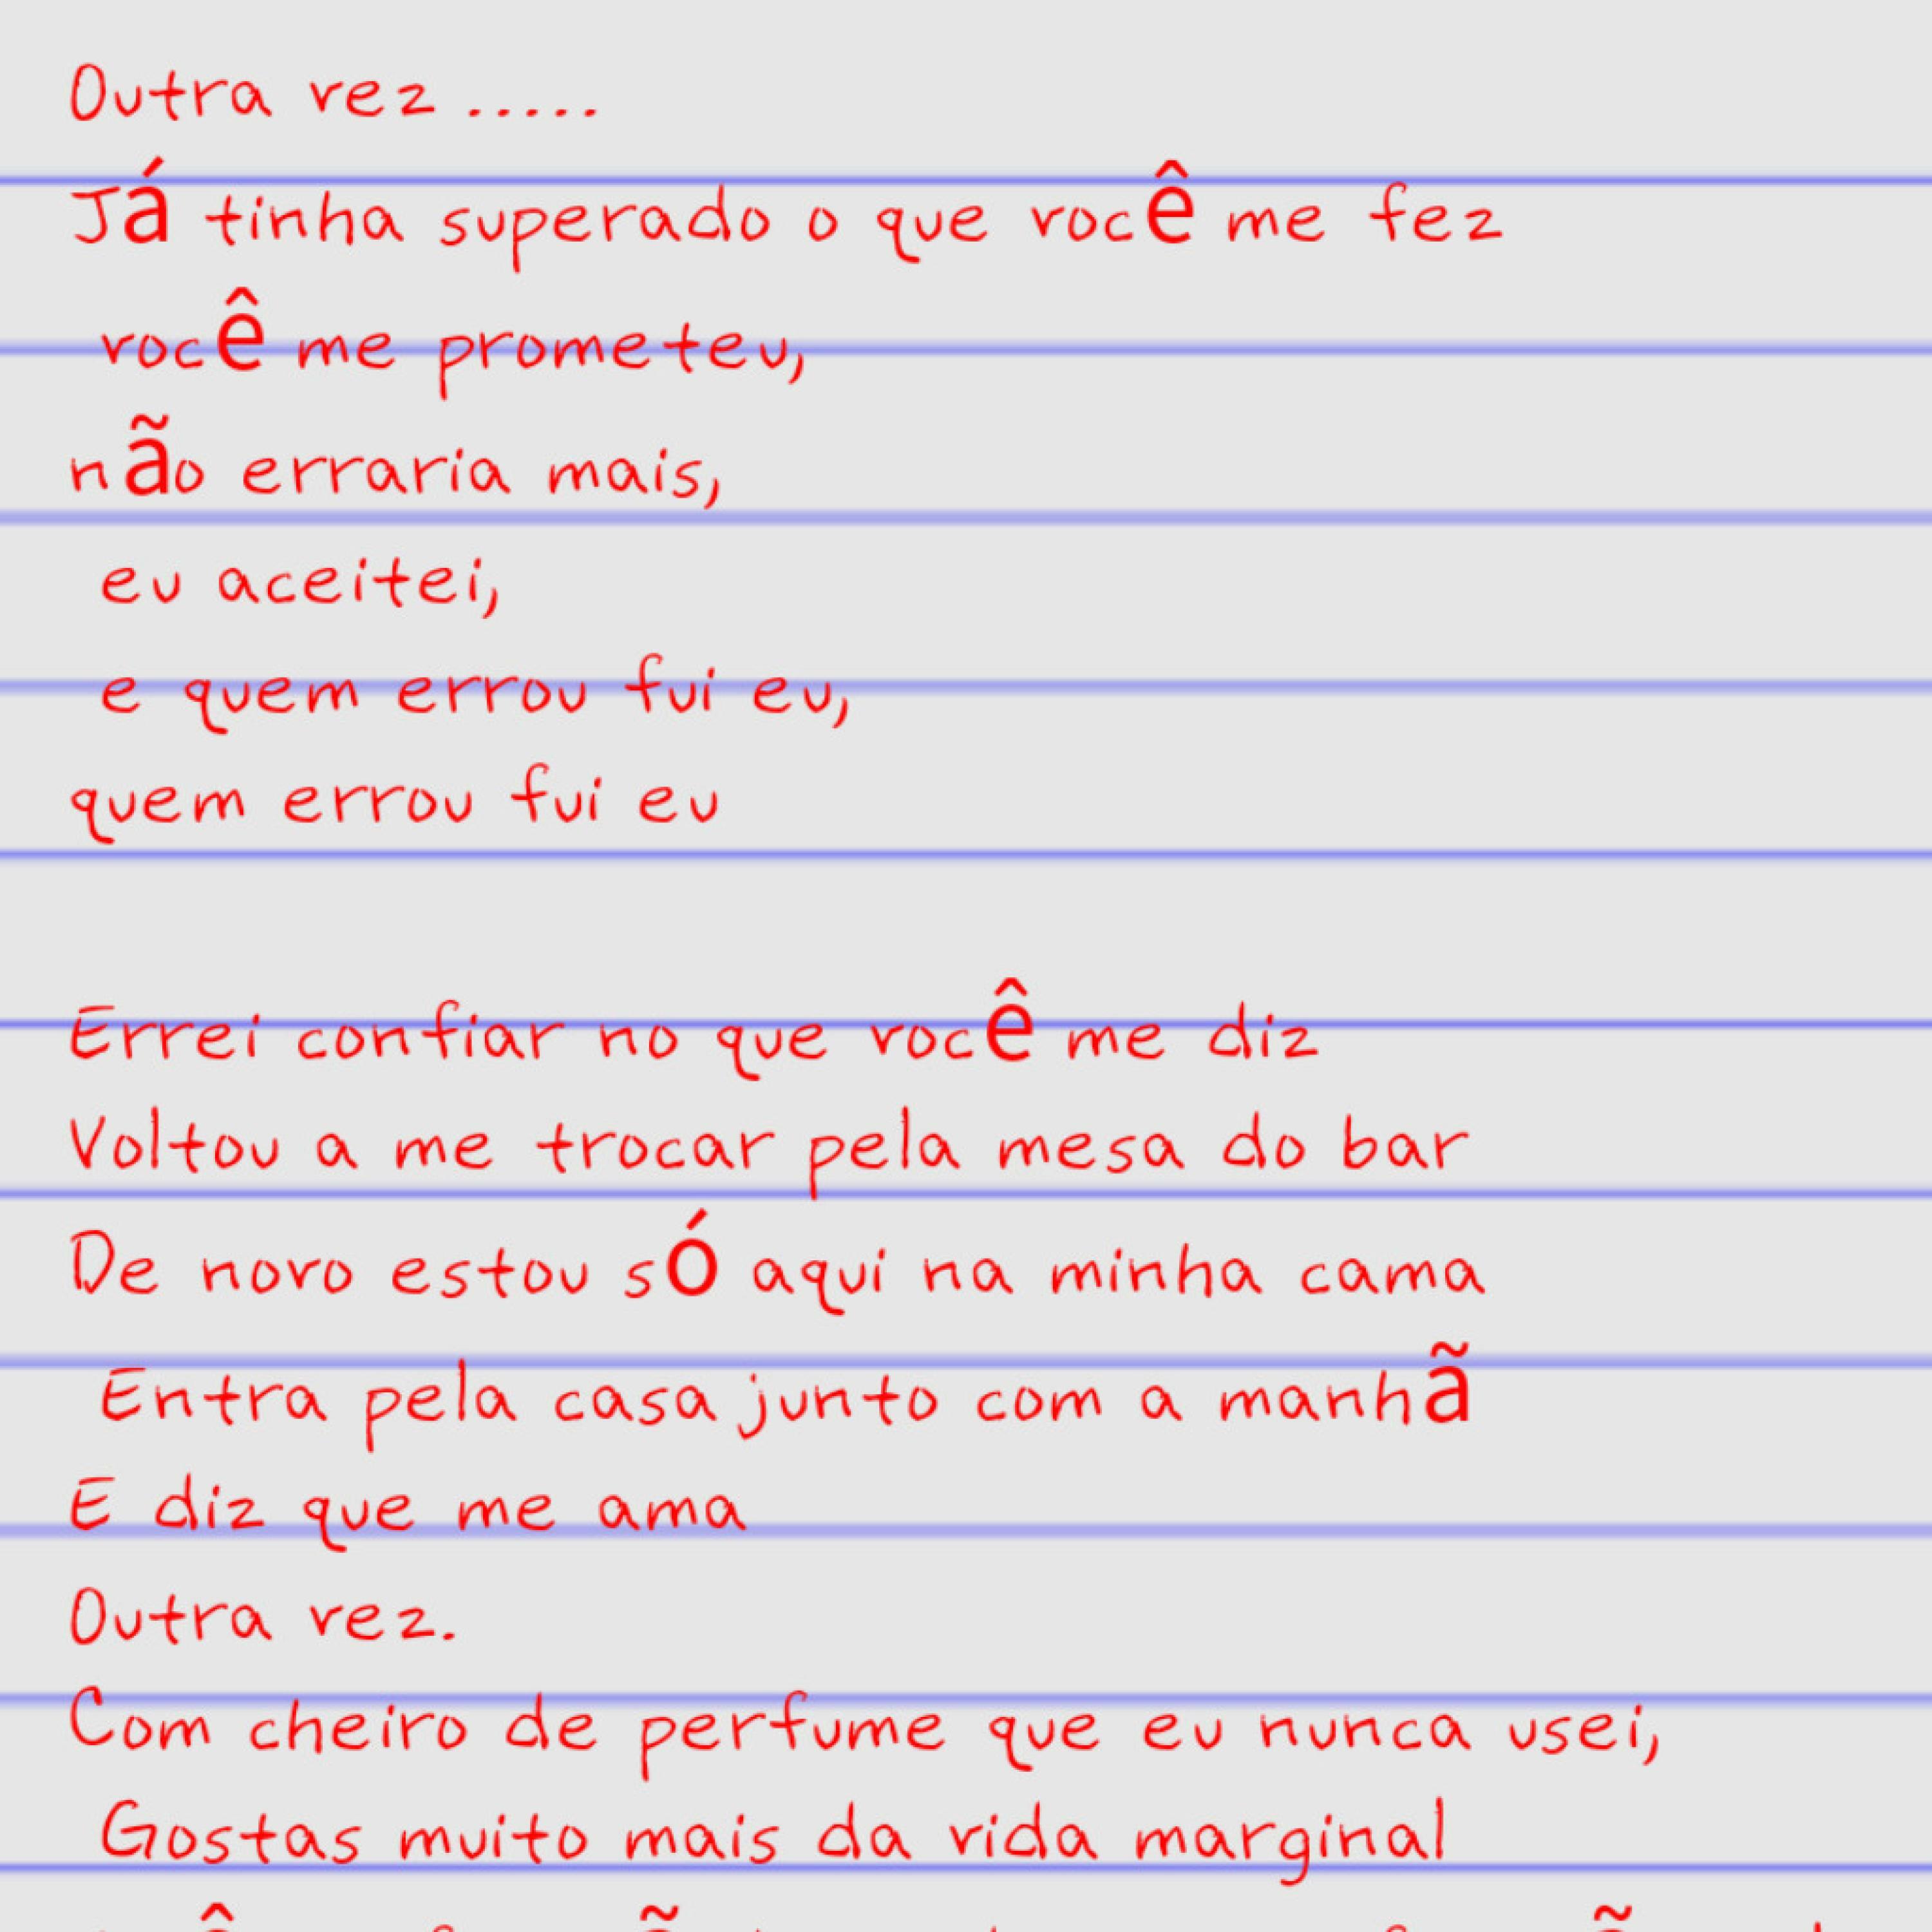 Outra vez .....
Já tinha superado o que você me fez
você me prometeu,
não erraria mais,
eu aceitei,
e quem errou fui eu,
quem errou fui eu
Errei confiar no que você me diz
Voltou a me trocar pela mesa do bar
De novo estou só aqui na minha cama
Entra pela casa junto com a manhã
E diz que me ama
Outra vez.
Com cheiro de perfume que eu nunca usei,
Gostas muito mais da vida marginal